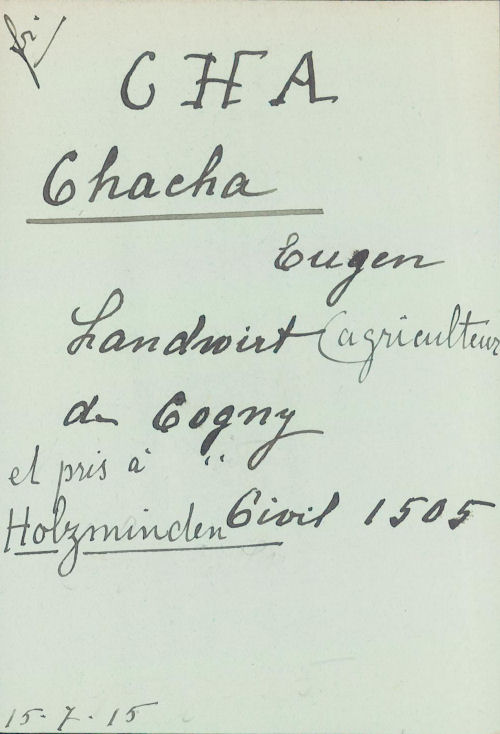 CHA
Chacha
Eugen
Landwirt (agriculteur
de Cogny
et pris à "
Holzminden Civil 1505
15-7-15